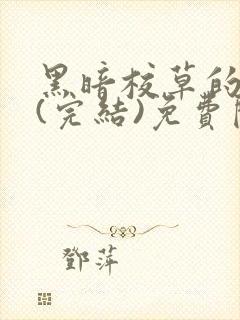 黑暗校草的
(完結)免費
鄧萍